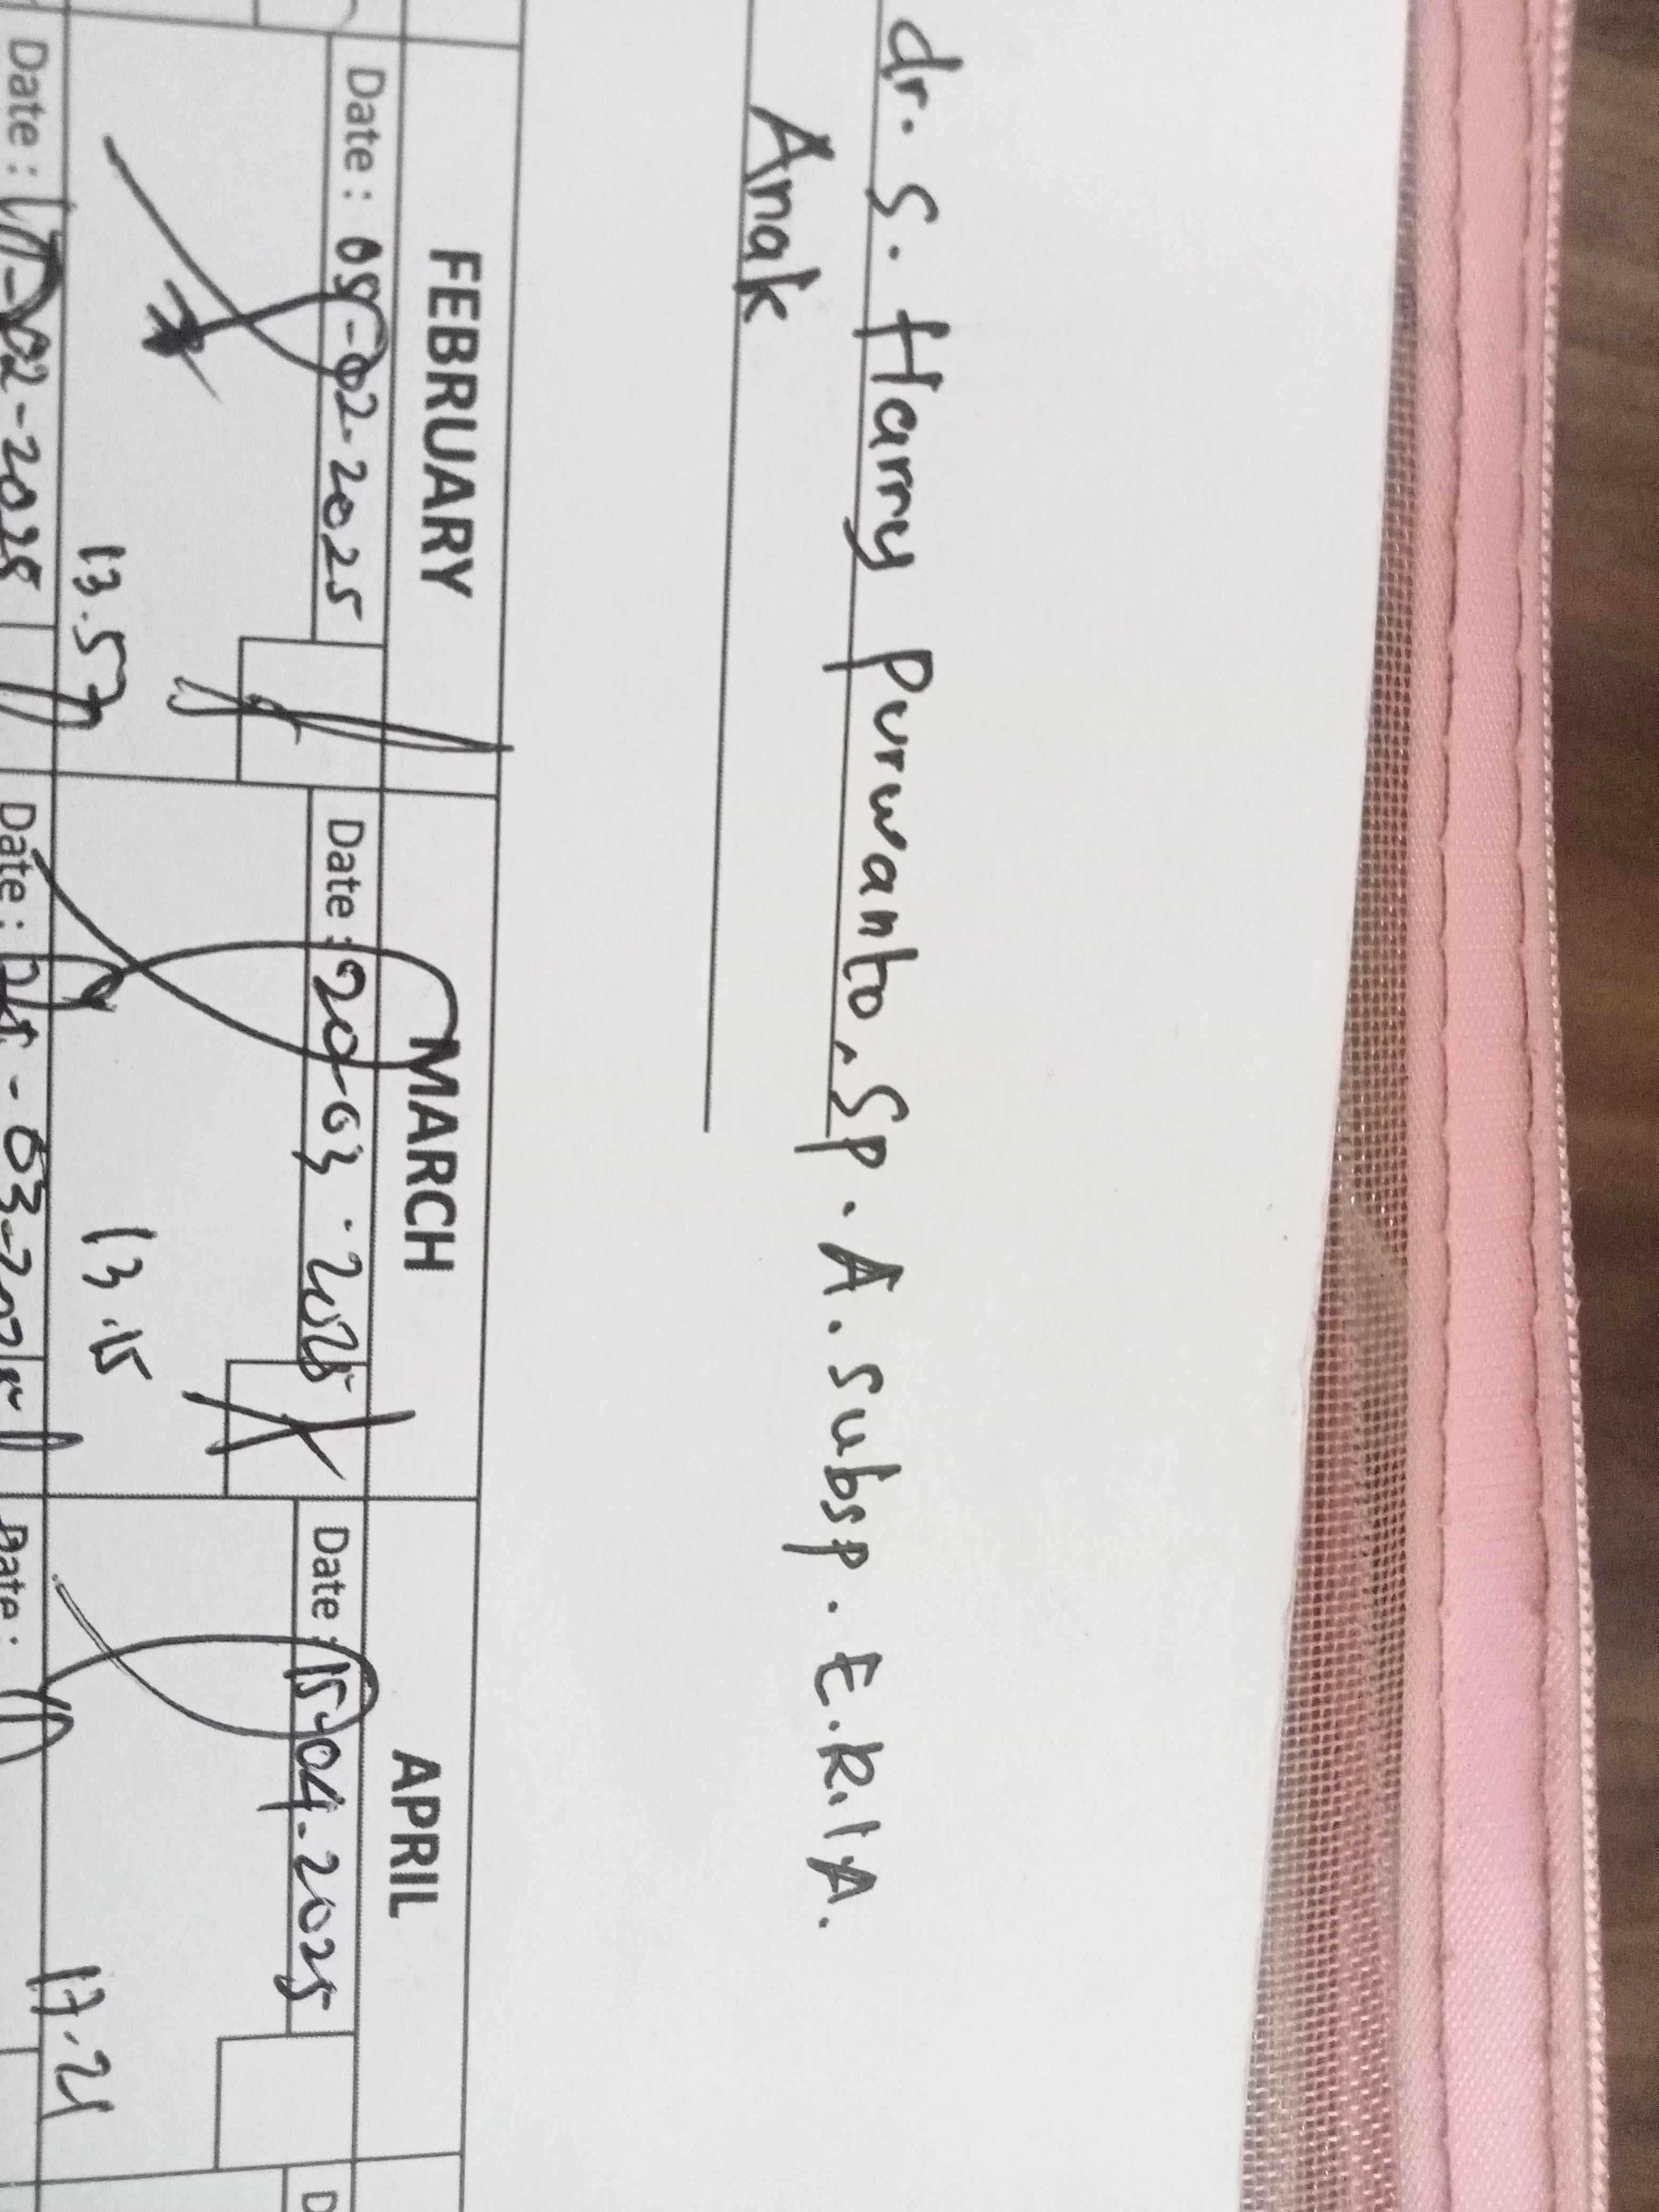 dr. S. Harry Purwanto, Sp. A. Subsp. E.R.I.A.
Anak
FEBRUARY MARCH APRIL
Date : 05-02-2025 Date : 20-03-2025 Date : 15-04-2025
13.57 13.15 17.21
Date : -02-2025 Date : -03-2025 Date :